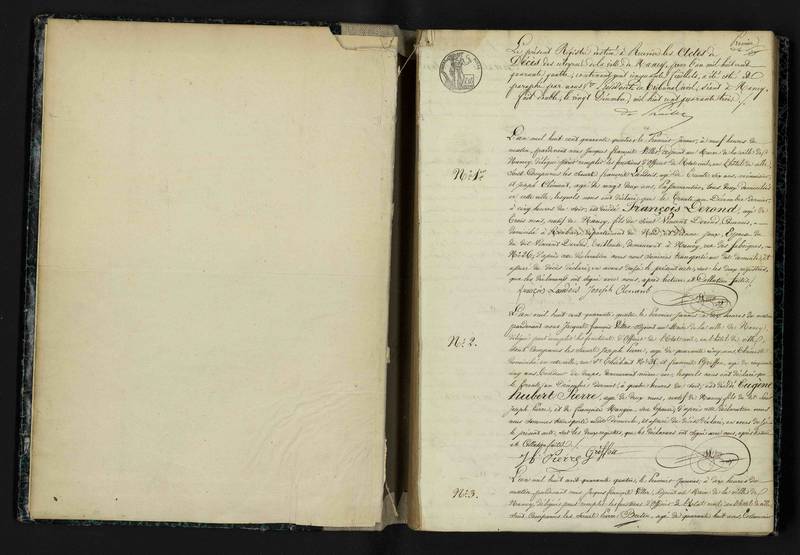 Premier
Le présent Registre destiné à Recevoir les Actes de
Décès des citoyens de la ville de Nancy, pour l'an mil huit cent
quarante quatre, contenant cinquante feuillets, a été coté et
paraphé par nous Président du Tribunal Civil, séant à Nancy.
fait double, le vingt Décembre mil huit cent quarante trois.
N.º 1.er
L'an mil huit cent quarante quatre, le Premier janvier, à neuf heures du
matin, pardevant nous Jacques françois Adjoint au Maire de la ville de
Nancy, délégué pour remplir les fonctions d'Officier de l'Etat civil, en l'hôtel de ville,
sont Comparus les sieurs françois Landois, agé de trente six ans,
et joseph Clément, agé de vingt deux ans, tous deux domiciliés
en cette ville, lesquels nous ont déclaré, que le trente un Décembre dernier,
à cinq heures du soir, est décédé François Lerond, agé de
trois mois, natif de Nancy, fils de Vincent Lerond,
domicilié à Roubaix, département du Nord, et
du dit Vincent Lerond, demeurant à Nancy, rue des fabriques,
N.º 26; d'après cette déclaration nous nous sommes transporté au dit domicile, et
assuré du décès déclaré, en avons dressé le présent acte, sur les deux registres,
que les déclarants ont signé avec nous, après lecture et Collation faites.
françois Landois Joseph Clement
N.º 2.
L'an mil huit cent quarante quatre, le Premier janvier, à dix heures du matin,
pardevant nous Jacques françois Adjoint au Maire de la ville de Nancy,
délégué pour remplir les fonctions d'Officier de l'Etat civil, en l'hôtel de ville,
sont Comparus les sieurs Joseph Pierre, agé de quarante cinq ans,
domicilié en cette ville, et françois Griffon, agé de cinquante
cinq ans, demeurant même rue, lesquels nous ont déclaré que
le trente un Décembre dernier, à quatre heures du soir, est décédé Eugène
hubert Pierre, agé de deux mois, natif de Nancy, fils du dit
joseph Pierre, et de françoise Mangin, son épouse; d'après cette déclaration nous
nous sommes transporté au dit domicile, et assuré du décès déclaré, en avons dressé
le présent acte, sur les deux registres, que les déclarants ont signé avec nous, après lecture
et Collation faites.
Jh Pierre Griffon
N.º 3.
L'an mil huit cent quarante quatre, le Premier janvier, à dix heures du
matin, pardevant nous Jacques françois Adjoint au Maire de la ville de
Nancy, délégué pour remplir les fonctions d'Officier de l'Etat civil, en l'hôtel de ville,
sont Comparus les sieurs Pierre agé de quarante huit ans,